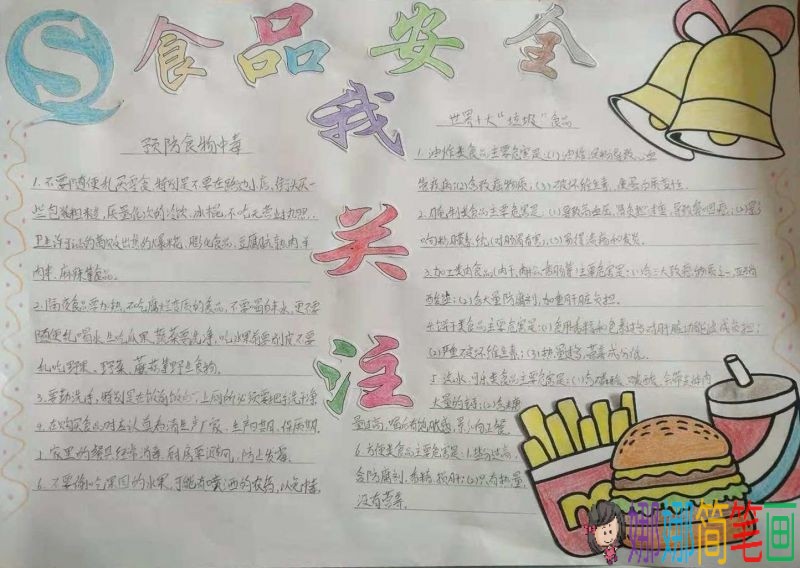 食品安全
我关注
预防食物中毒
1.不要随便乱买零食,特别是不要在路边小店,街认买一
些包装粗糙,质量低次的冷饮,冰棍,不吃无营业执照
卫生许可的商贩出卖的爆米花、膨化食品、豆腐
肉串,麻辣等食品。
2.隔夜食品要加热,不吃腐烂变质的食品,不要喝生水,更不要
随便乱喝水,生吃瓜果、蔬菜要洗净,吃水果前要削皮不要
乱吃野果、野菜、蘑菇等野生食物。
3.要勤洗净,特别是在饭前饭后、上厕所必须要把手洗干净
4.在购买食品时应认真看清生产厂家、生产日期、保质期。
5.家里的餐具经常消毒,厨房要通风,防止发霉。
6.不要偷吃果园的水果,可能有喷洒的农药,以免中毒。
世界十大“垃圾”食品
1.油炸类食品主要危害是:(1)油炸淀粉导致心血
管疾病;(2)含致癌物质;(3)破坏维生素,使蛋白质变性。
2.腌制类食品主要危害是:(1)导致高血压,肾负担过重,导致鼻咽癌;(2)影
响粘膜系统(对肠胃有害);(3)易得溃疡和发炎。
3.加工类肉食品(肉干、肉松、香肠等)主要危害是:(1)含三大致癌物质之一:亚硝
酸盐;(2)含大量防腐剂,加重肝脏负担。
4.饼干类食品主要危害是:(1)食用香精和色素过多对肝脏功能造成负担;
(2)严重破坏维生素;(3)热量过多、营养成分低。
5.汽水、可乐类食品主要危害是:(1)含磷酸、碳酸,会带走体内
大量的钙;(2)含糖
量过高,喝后有饱胀感,影响正餐。
6.方便类食品主要危害是:(1)盐分过高,
含防腐剂、香精,损肝;(2)只有热量,
没有营养。
娜娜简笔画